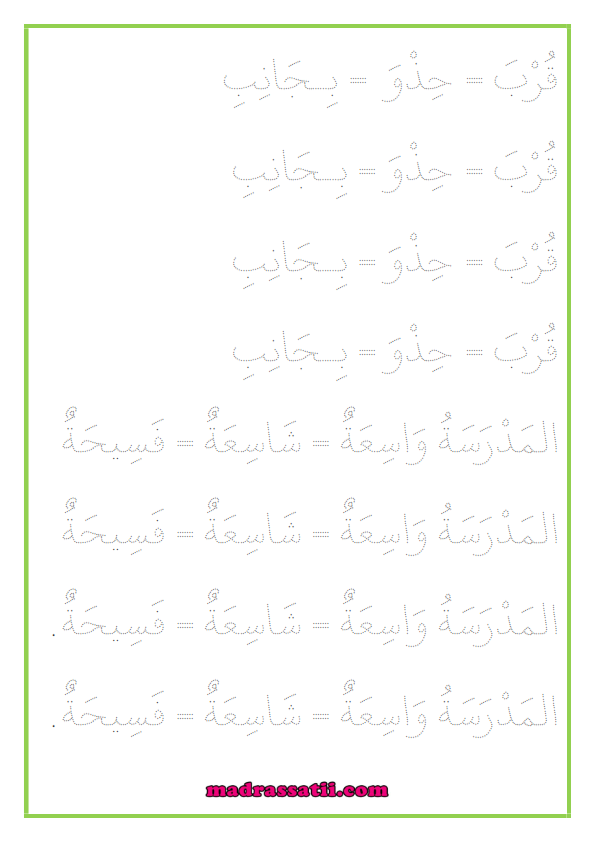 قُرْبَ = حِذْوَ = بِجَانِبِ
قُرْبَ = حِذْوَ = بِجَانِبِ
قُرْبَ = حِذْوَ = بِجَانِبِ
قُرْبَ = حِذْوَ = بِجَانِبِ
المَدْرَسَةُ وَاسِعَةٌ = شَاسِعَةٌ = فَسِيحَةٌ
المَدْرَسَةُ وَاسِعَةٌ = شَاسِعَةٌ = فَسِيحَةٌ
المَدْرَسَةُ وَاسِعَةٌ = شَاسِعَةٌ = فَسِيحَةٌ .
المَدْرَسَةُ وَاسِعَةٌ = شَاسِعَةٌ = فَسِيحَةٌ .
madrassatii.com